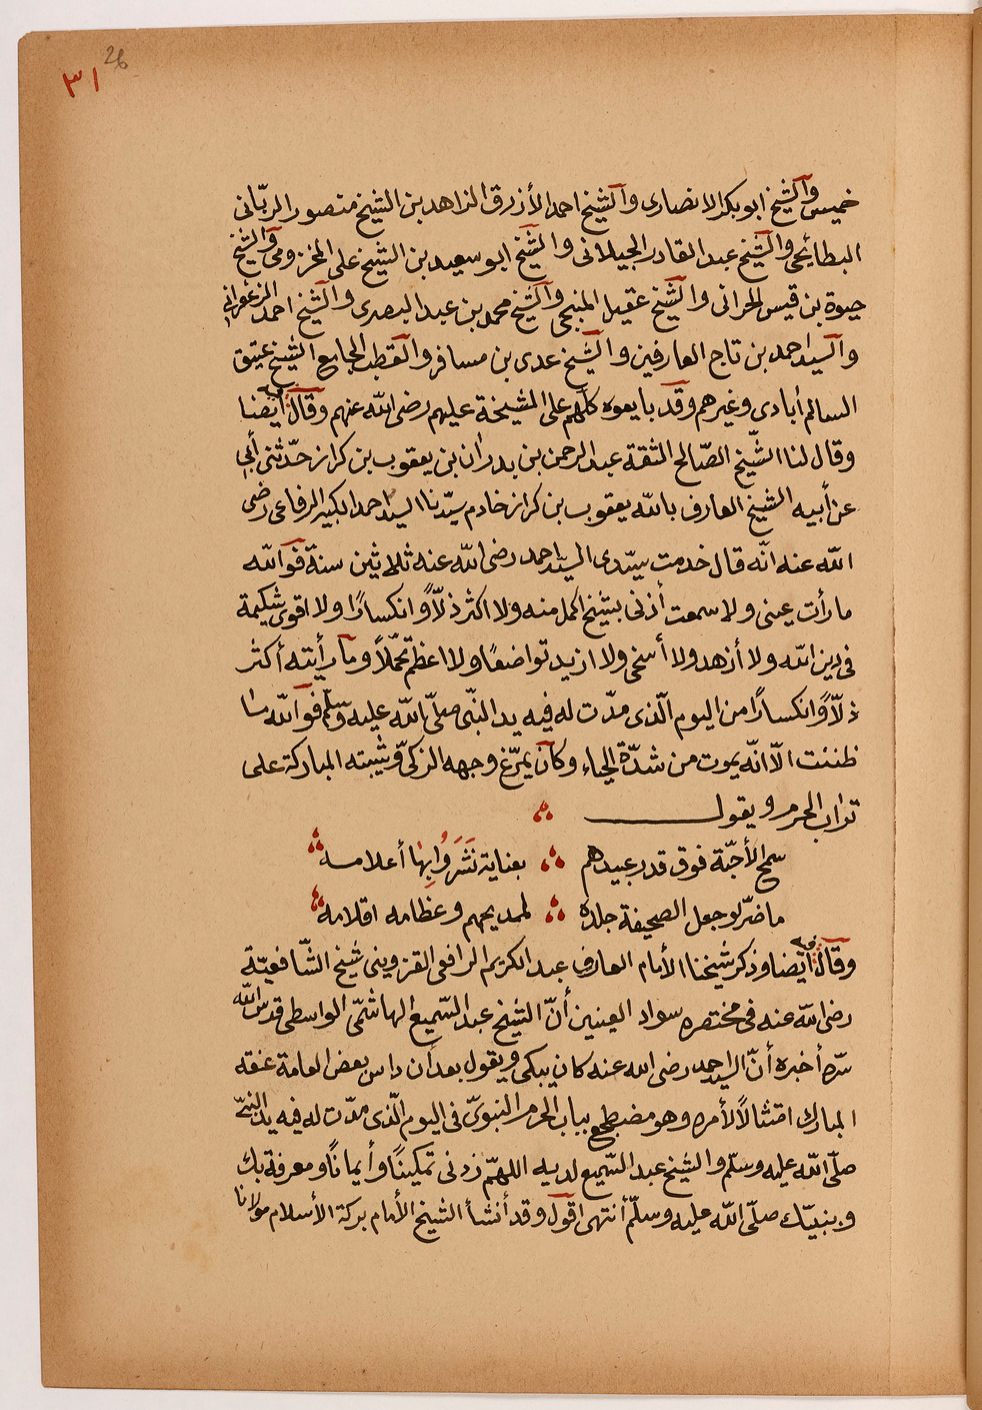 26
٣١
خميس والشيخ ابو بكر الانصارى والشيخ احمد الأزرق الزاهد بن الشيخ منصور الربّانى
البطائحى والشيخ عبد القادر الجيلانى والشيخ ابو سعيد بن الشيخ على المخزومى والشيخ
حيوة بن قيس الحرانى والشيخ عقيل المنبجى والشيخ محمد بن عبد البصرى والشيخ احمد الزعفرانى
والسيد احمد بن تاج العارفين والشيخ عدى بن مسافر والقطب الجامع الشيخ عتيق
السالم أبادى وغيرهم وقد بايعوه كلّهم على المشيخة عليهم رضى الله عنهم وقال أيضنا
وقال لنا الشّيخ الصّالح الثقة عبد الرحمن بن بدران بن يعقوب بن كراز حدّثنى أبى
عن أبيه الشيخ العارف بالله يعقوب بن كراز خادم سيّدنا السيد احمد الكبير الرفاعى رضى
الله عنه انّه قال خدمت سيّدى السيّد احمد رضى الله عنه ثلاثين سنة فوالله
ما رأت عينى ولا سمعت أذنى بشيخ اكمل منه ولا اكثر ذلّاً وانكسارًا ولا اقوى شكيمة
فى دين الله ولا أزهد ولا أسخى ولا ازيد تواضعًا ولا اعظم تحمّلاً وما رأيته أكثر
ذلّاً وانكسارًا من اليوم الّذى مدّت له فيه يد النّبى صلّى الله عليه وسلّم فوالله ما
ظننت الّا انّه يموت من شدّة الحياء وكان يمرّغ وجهه الزكىّ وشيبته المباركة على
تراب الحرم ويقول
سمح الأحبّة فوق قدر عبيدهم بعناية نَشَرَوُا بِهَا أعلامه
ما ضرّ لو جعل الصحيفة جلده لمديحهم وعظامه اقلامه
وقال ايضا وذكر شيخنا الأمام العارف عبد الكريم الرافعى القزوينى شيخ الشّافعيّة
رضى الله عنه فى مختصره سواد العينين أنّ الشيخ عبد السّميع الهاشمّى الواسطى قدس الله
سّره أخبره أنّ السيد احمد رضى الله عنه كان يبكى ويقول بعد أن داس بعض العامة عنقه
المبارك امتثالاً لأمره وهو مضطجع بباب الحرم النبوىّ فى اليوم الّذى مدّت له فيه يد النّبىّ
صلّى الله عليه وسلّم والشيخ عبد السّميع لديه اللهمّ زدنى تمكينًا وأيمانًا ومعرفة بك
وبنبيّك صلّى الله عليه وسلّم أنتهى اقول وقد أنشأ الشيخ الأمام بركة الأسلام مولانا